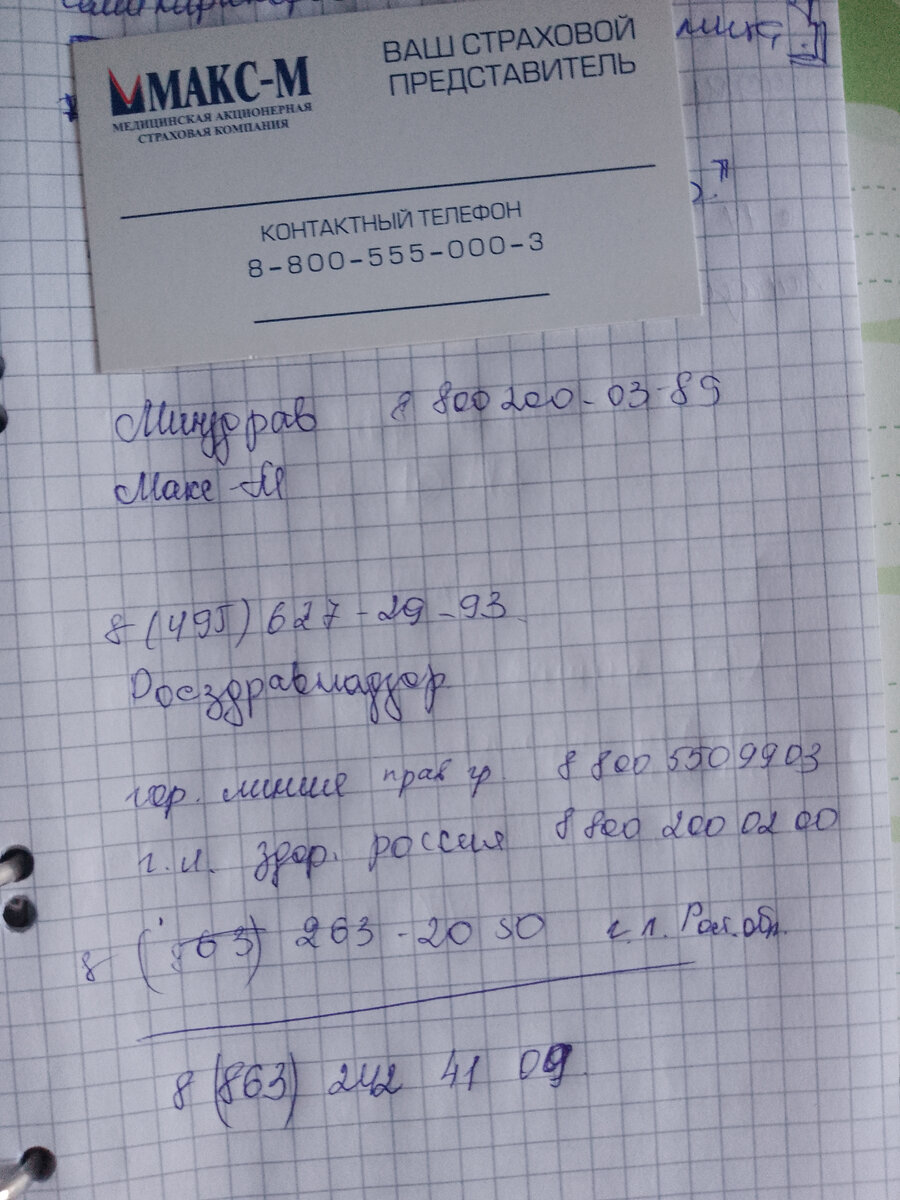 МАКС-М
МЕДИЦИНСКАЯ АКЦИОНЕРНАЯ
СТРАХОВАЯ КОМПАНИЯ
ВАШ СТРАХОВОЙ
ПРЕДСТАВИТЕЛЬ
КОНТАКТНЫЙ ТЕЛЕФОН
8-800-555-000-3
Минздрав 8 800 200-03-89
Макс-М
8 (495) 627-29-93
Росздравнадзор
гор. линия прав гр. 8 800 5509903
г.л. здор. россия 8 800 200 02 00
8 (863) 263-20 50 г.л. Рос. обл.
8 (863) 242 41 09